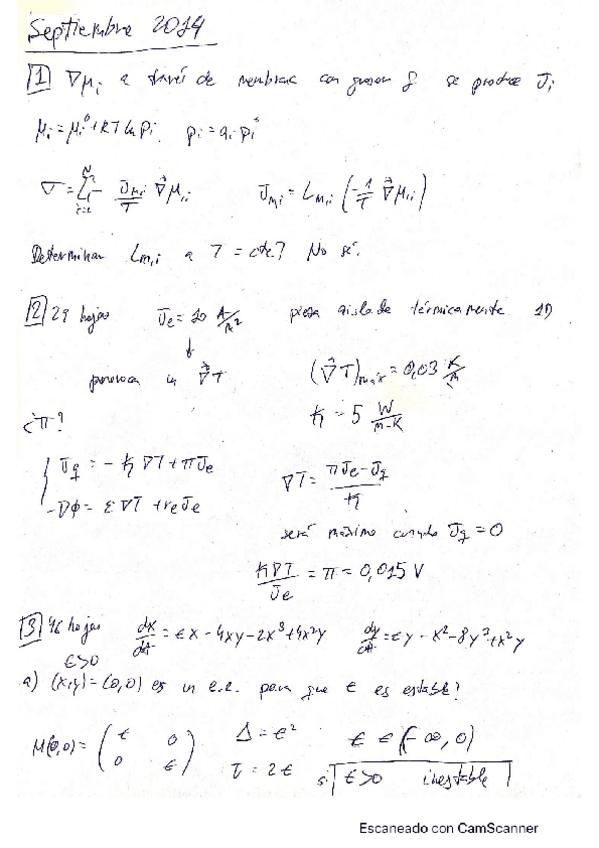 Septiembre 2014
1 ∇μi a través de membrana con grosor δ se produce Ji
μi = μi⁰ + RT ln Pi. Pi = ai Pi*
σ = Σ - JMi/T ∇⃗μi; JMi = LMii (-1/T ∇⃗μii)
Determinar LMii a T = cte? No sé.
2 29 hojas Je = 10 A/m² pieza aislada térmicamente 1D
provoca un ∇⃗T (∇⃗T)máx = 0,03 K/m
¿π? ℏ = 5 W/m·K
Jq = -ℏ ∇T + πJe ∇T = (πJe - Jq)/ℏ
-∇φ = ε∇T + reJe será máximo cuando Jq = 0
ℏ∇T/Je = π = 0,015 V
3 46 hojas dx/dt = εx - 4xy - 2x³ + 4x²y dy/dt = εy - x² - 8y³ + x²y
ε>0
a) (x,y) = (0,0) es un e.e. para que ε es estable?
M(0,0) = (ε 0 0 ε) Δ = ε² ε ∈ (-∞, 0)
τ = 2ε si ε>0 inestable
Escaneado con CamScanner